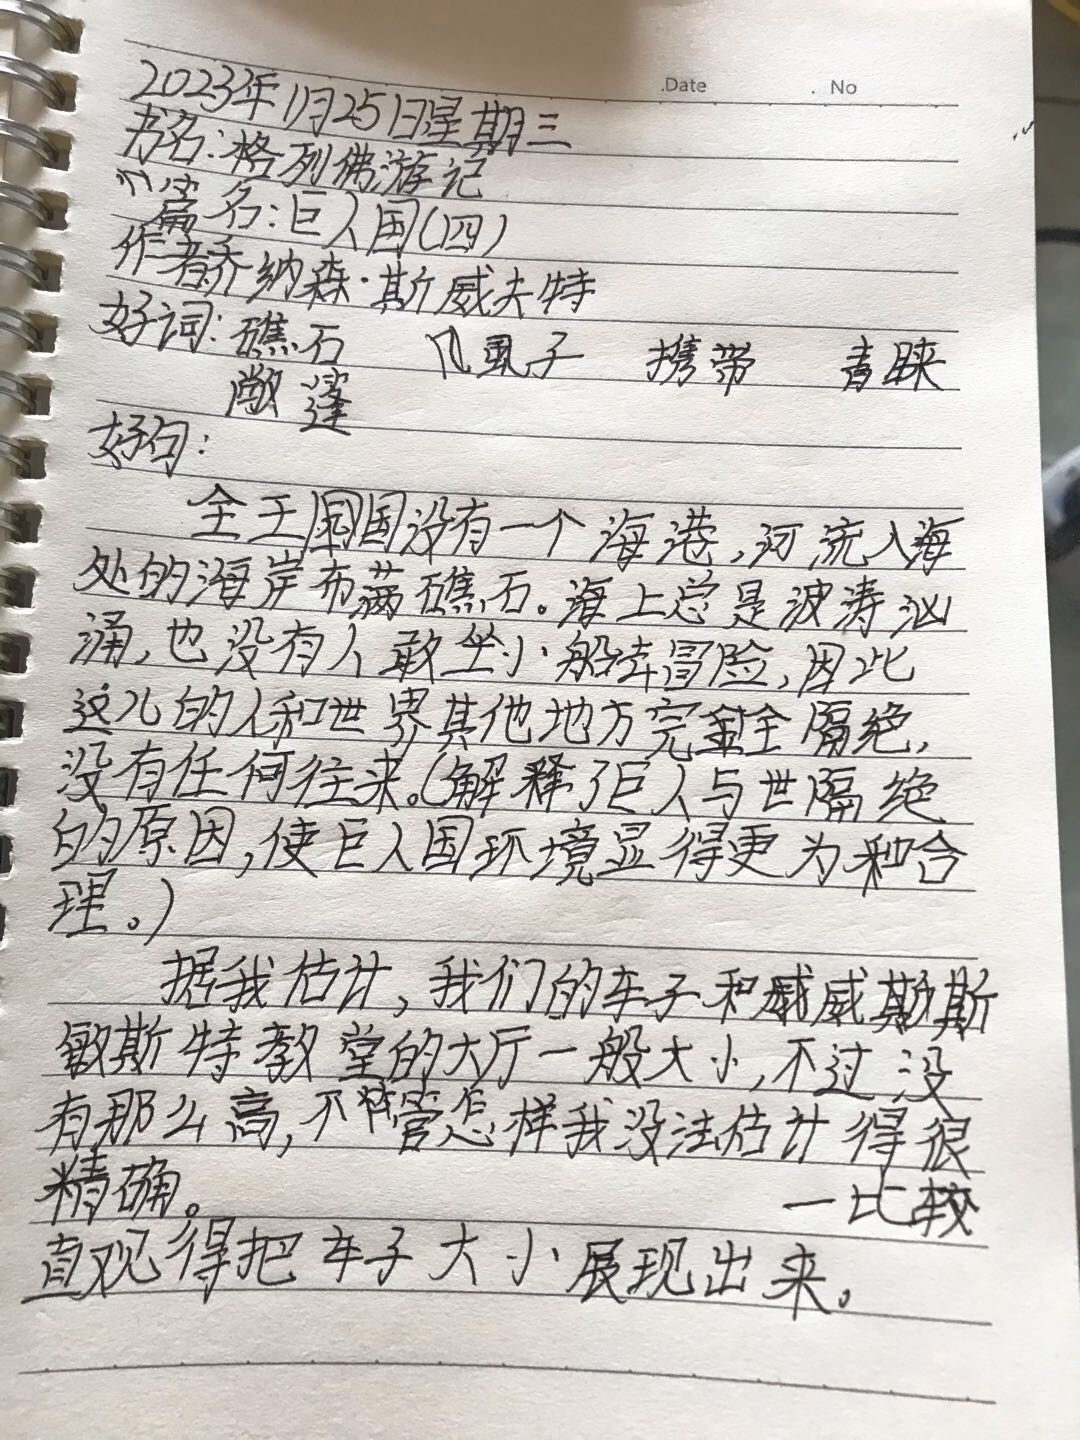 Date No
2023年1月25日星期三
书名:格列佛游记
篇名:巨人国(四)
作者乔纳森·斯威夫特
好词:礁石 虱子 携带 青睐
敞篷
好句:
全王国没有一个海港,河流入海
处的海岸布满礁石。海上总是波涛汹
涌,也没有人敢坐小船去冒险,因此
这儿的人和世界其他地方完全隔绝,
没有任何往来。(解释了巨人与世隔绝
的原因,使巨人国环境显得更为和合
理。)
据我估计,我们的车子和威斯
敏斯特教堂的大厅一般大小,不过没
有那么高,不管怎样我没法估计得很
精确。 一比较
直观得把车子大小展现出来。